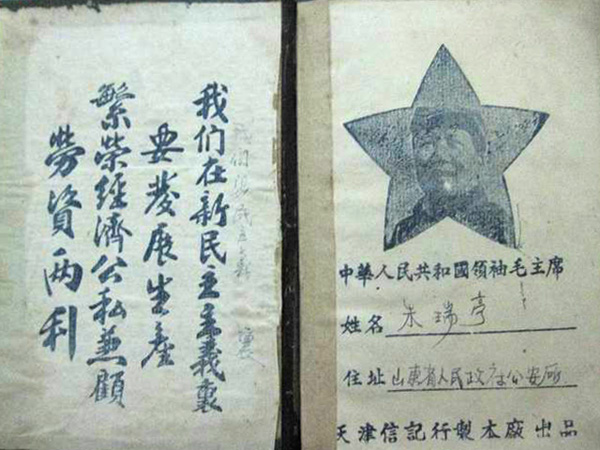 我们在新民主主義裏
要發展生產
繁荣經濟公私兼顧
勞資两利
中華人民共和國領袖毛主席
姓名 朱瑞亭
住址 山東省人民政府公安所
天津信記行製本廠出品